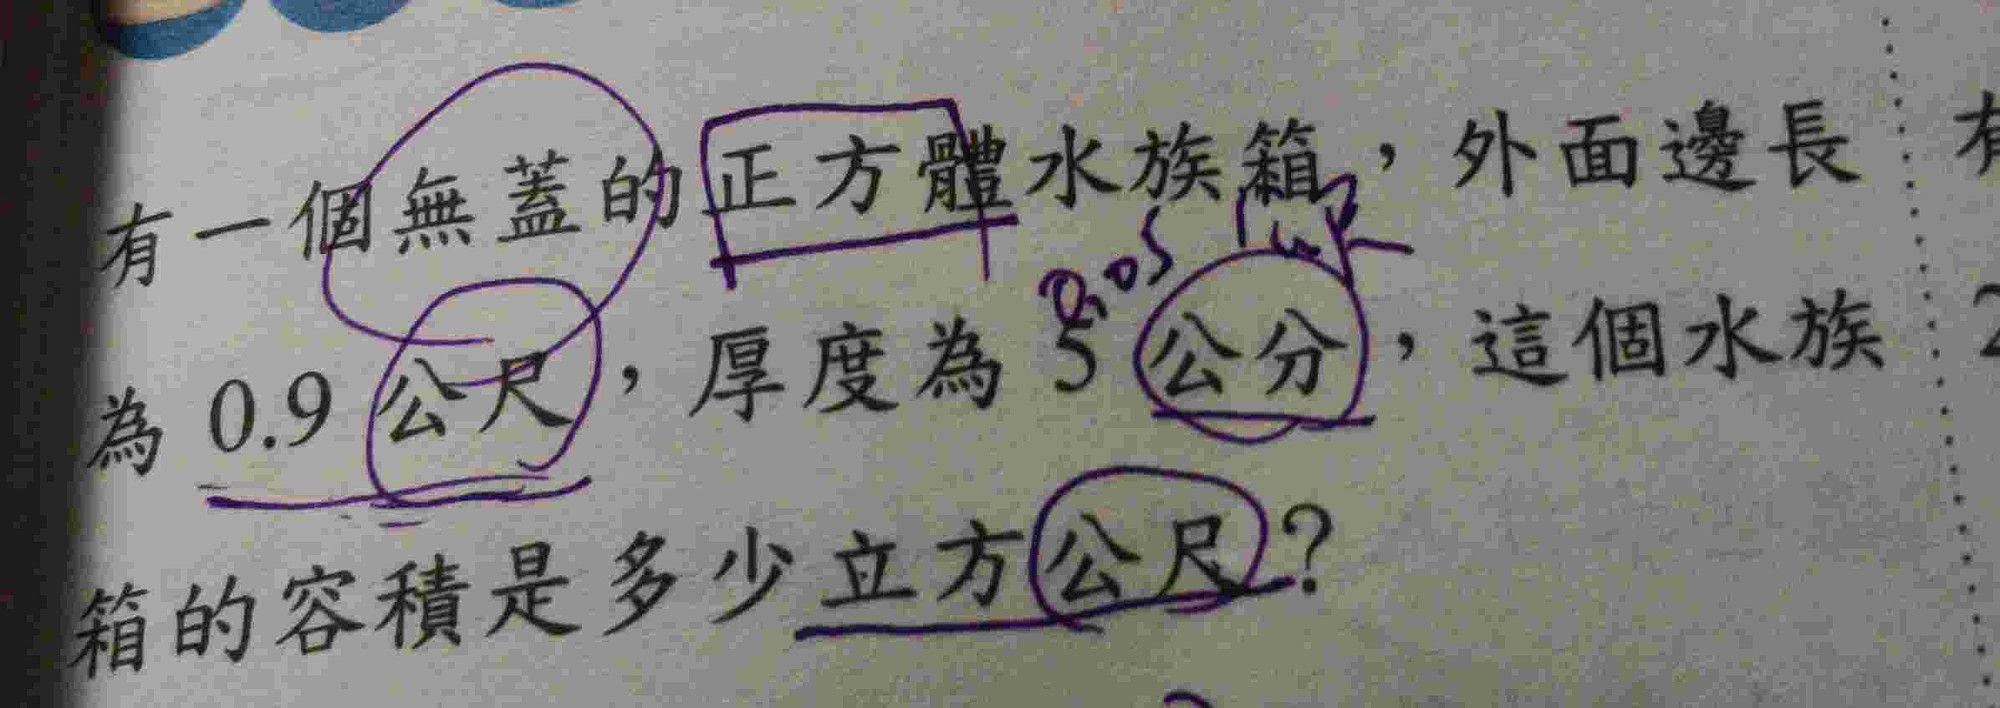 有一個無蓋的正方體水族箱，外面邊長
0.05
為0.9公尺，厚度為5公分，這個水族
箱的容積是多少立方公尺？